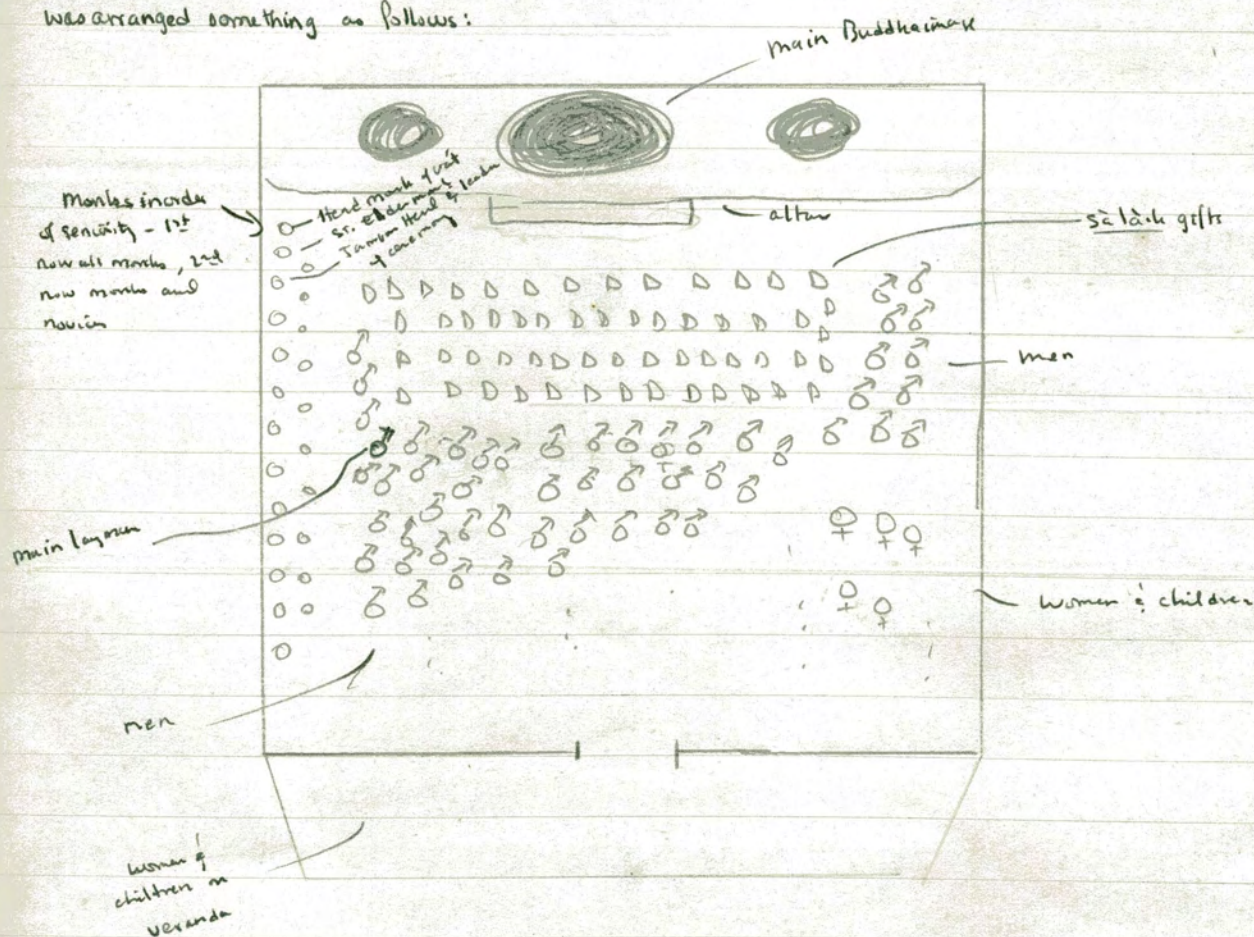 was arranged something as follows:
main Buddha image
Monks in order
of seniority - 1st
row all monks, 2nd
row monks and
novices
Head monk of wat
Sr. elder monk
Tambon Head & leader
of ceremony
altar
sàlàk gifts
men
main layman
women & children
men
women &
children on
veranda